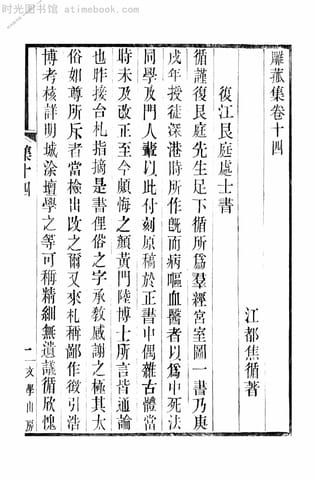 时光图书馆 atimebook.com
雕菰集卷十四
江都焦循著
復江艮庭處士書
循謹復艮庭先生足下循所為羣經宮室圖一書乃庚
戌年授徒深港時所作旣而病嘔血醫者以為中死法
同學及門人輩以此付刻原稿於正書中偶雜古體當
時未及改正至今頗悔之顏黃門陸博士所言皆通論
也昨接台札指摘是書俚俗之字承敎感謝之極其太
俗如尊所斥者當檢出改之爾又來札稱鄙作徵引浩
博考核詳明城涂壇學之等可稱精細無遺謹循欣愧
集十四
一
文學山房